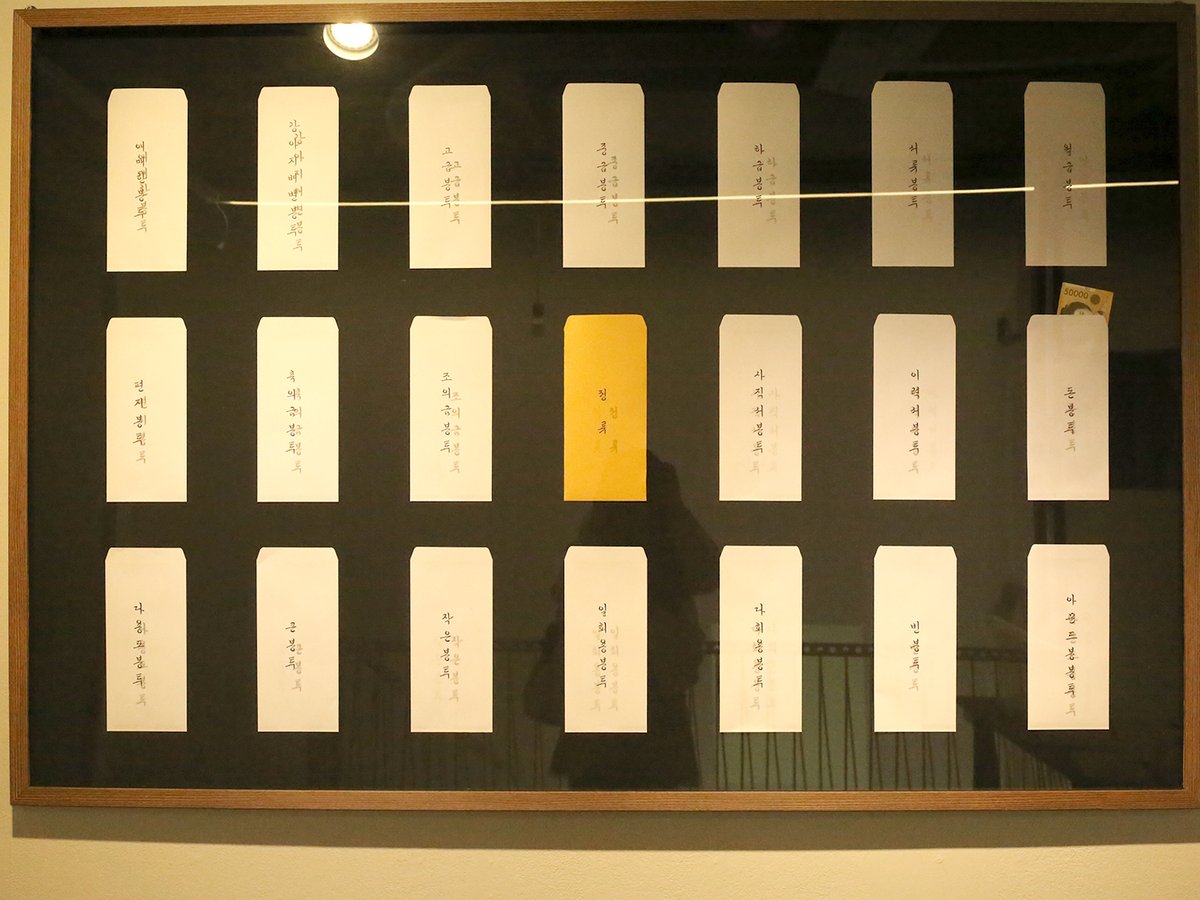 강아지배변봉투
고급봉투
중급봉투
하급봉투
서류봉투
월급봉투
편지봉투
축의금봉투
조의금봉투
사직서봉투
이력서봉투
50000
돈봉투
다용도봉투
큰봉투
작은봉투
일회용봉투
다회용봉투
빈봉투